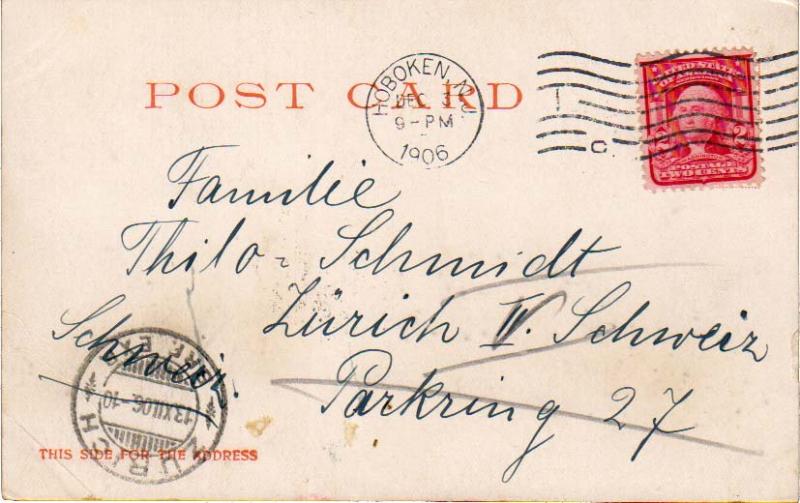 POST CARD
HOBOKEN, N.J.
DEC 3
9-PM
1906
C
UNITED STATES
OF AMERICA
POSTAGE
2
TWO CENTS
Familie
Thilo-Schmidt
Zürich IV. Schweiz
Schweiz
Parkring 27
ZÜRICH
13.XII.06.-10
THIS SIDE FOR THE ADDRESS